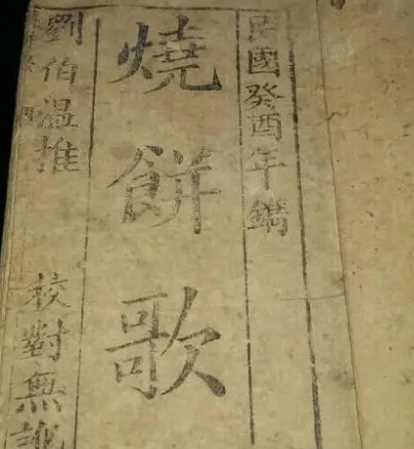 民國癸酉年鐫
燒餅歌
劉伯溫推 校對無訛